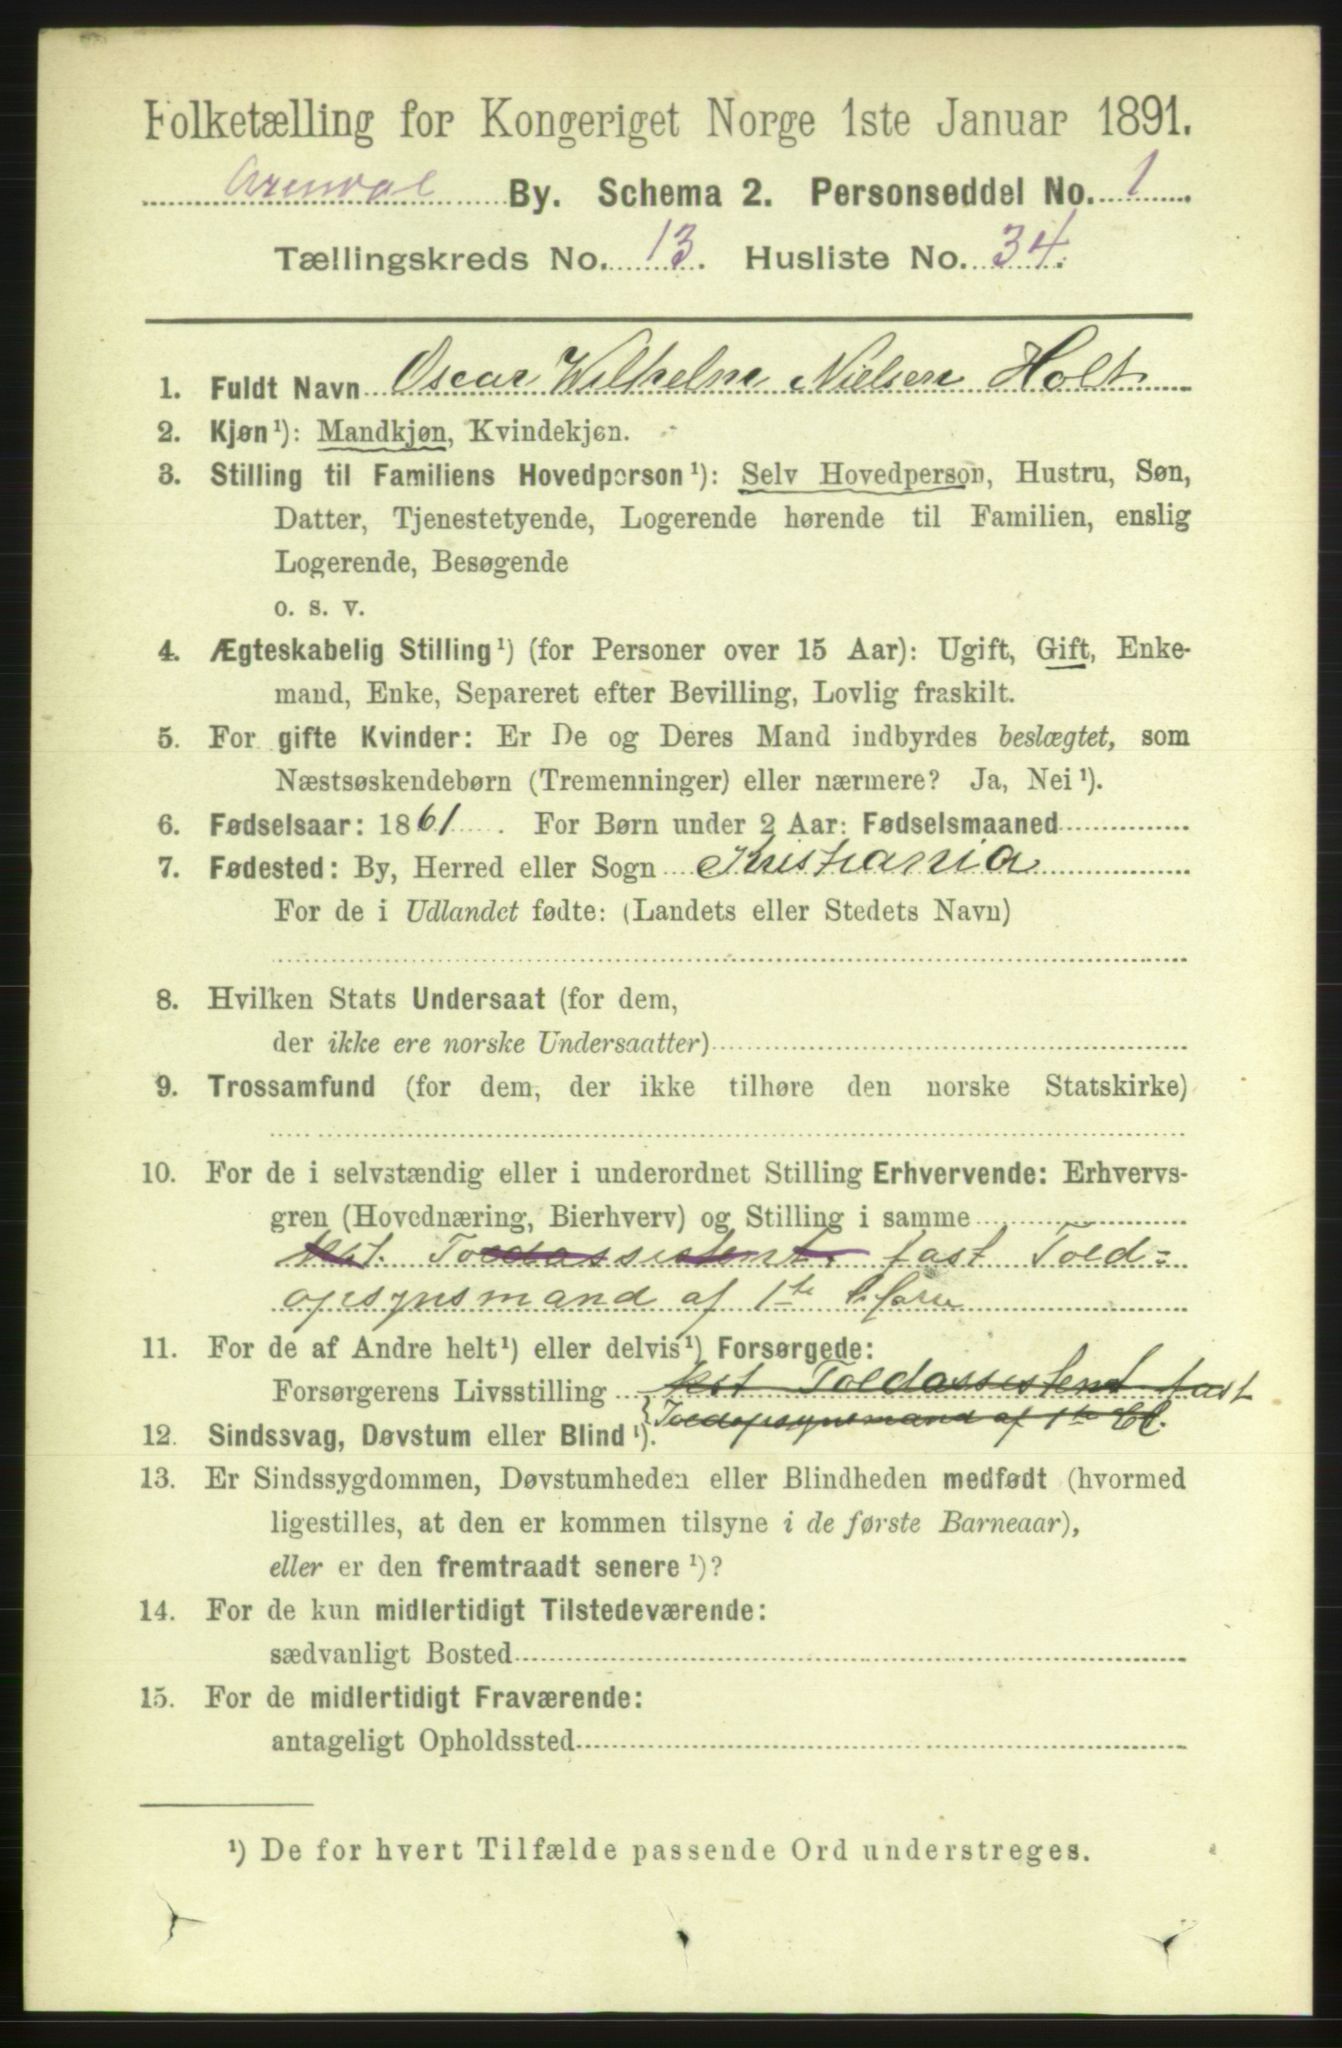 Folketælling for Kongeriget Norge 1ste Januar 1891.
Arendal By. Schema 2. Personseddel No. 1
Tællingskreds No. 13. Husliste No. 34.
1. Fuldt Navn Oscar Wilhelm Nielsen Holt
2. Kjøn¹): Mandkjøn, Kvindekjøn.
3. Stilling til Familiens Hovedperson¹): Selv Hovedperson, Hustru, Søn,
Datter, Tjenestetyende, Logerende hørende til Familien, enslig
Logerende, Besøgende
o. s. v.
4. Ægteskabelig Stilling¹) (for Personer over 15 Aar): Ugift, Gift, Enke-
mand, Enke, Separeret efter Bevilling, Lovlig fraskilt.
5. For gifte Kvinder: Er De og Deres Mand indbyrdes beslægtet, som
Næstsøskendebørn (Tremenninger) eller nærmere? Ja, Nei¹).
6. Fødselsaar: 1861. For Børn under 2 Aar: Fødselsmaaned
7. Fødested: By, Herred eller Sogn Kristiania
For de i Udlandet fødte: (Landets eller Stedets Navn)
8. Hvilken Stats Undersaat (for dem,
der ikke ere norske Undersaatter)
9. Trossamfund (for dem, der ikke tilhøre den norske Statskirke)
10. For de i selvstændig eller i underordnet Stilling Erhvervende: Erhvervs-
gren (Hovednæring, Bierhverv) og Stilling i samme
Toldassistent fast Told=
opsynsmand af 1ste
11. For de af Andre helt¹) eller delvis¹) Forsørgede:
Forsørgerens Livsstilling Toldassistent fast
Toldopsynsmand af 1ste Cl.
12. Sindssvag, Døvstum eller Blind¹).
13. Er Sindssygdommen, Døvstumheden eller Blindheden medfødt (hvormed
ligestilles, at den er kommen tilsyne i de første Barneaar),
eller er den fremtraadt senere¹)?
14. For de kun midlertidigt Tilstedeværende:
sædvanligt Bosted
15. For de midlertidigt Fraværende:
antageligt Opholdssted
¹) De for hvert Tilfælde passende Ord understreges.